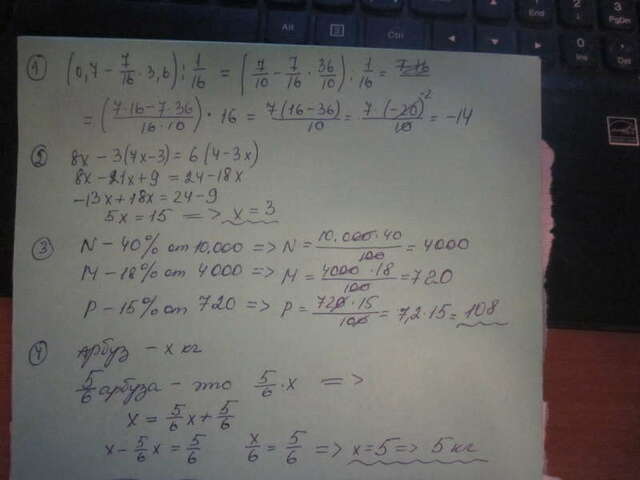 Alt
Ctrl
End
Ins
Del
1) (0,7 - 7/16 · 3,6) : 1/16 = (7/10 - 7/16 · 36/10) : 1/16 = 7·16
= (7·16-7·36 / 16·10) · 16 = 7(16-36)/10 = 7·(-20)^-2/10 = -14
2) 8x - 3(7x-3) = 6(4-3x)
8x - 21x + 9 = 24 - 18x
-13x + 18x = 24 - 9
5x = 15 => x = 3
3) N - 40% от 10.000 => N = 10.000·40/100 = 4000
M - 18% от 4000 => M = 4000·18/100 = 720
P - 15% от 720 => P = 720·15/100 = 7,2·15 = 108
4) Арбуз - x кг
5/6 арбуза - это 5/6·x =>
x = 5/6x + 5/6
x - 5/6x = 5/6 x/6 = 5/6 => x = 5 => 5 кг